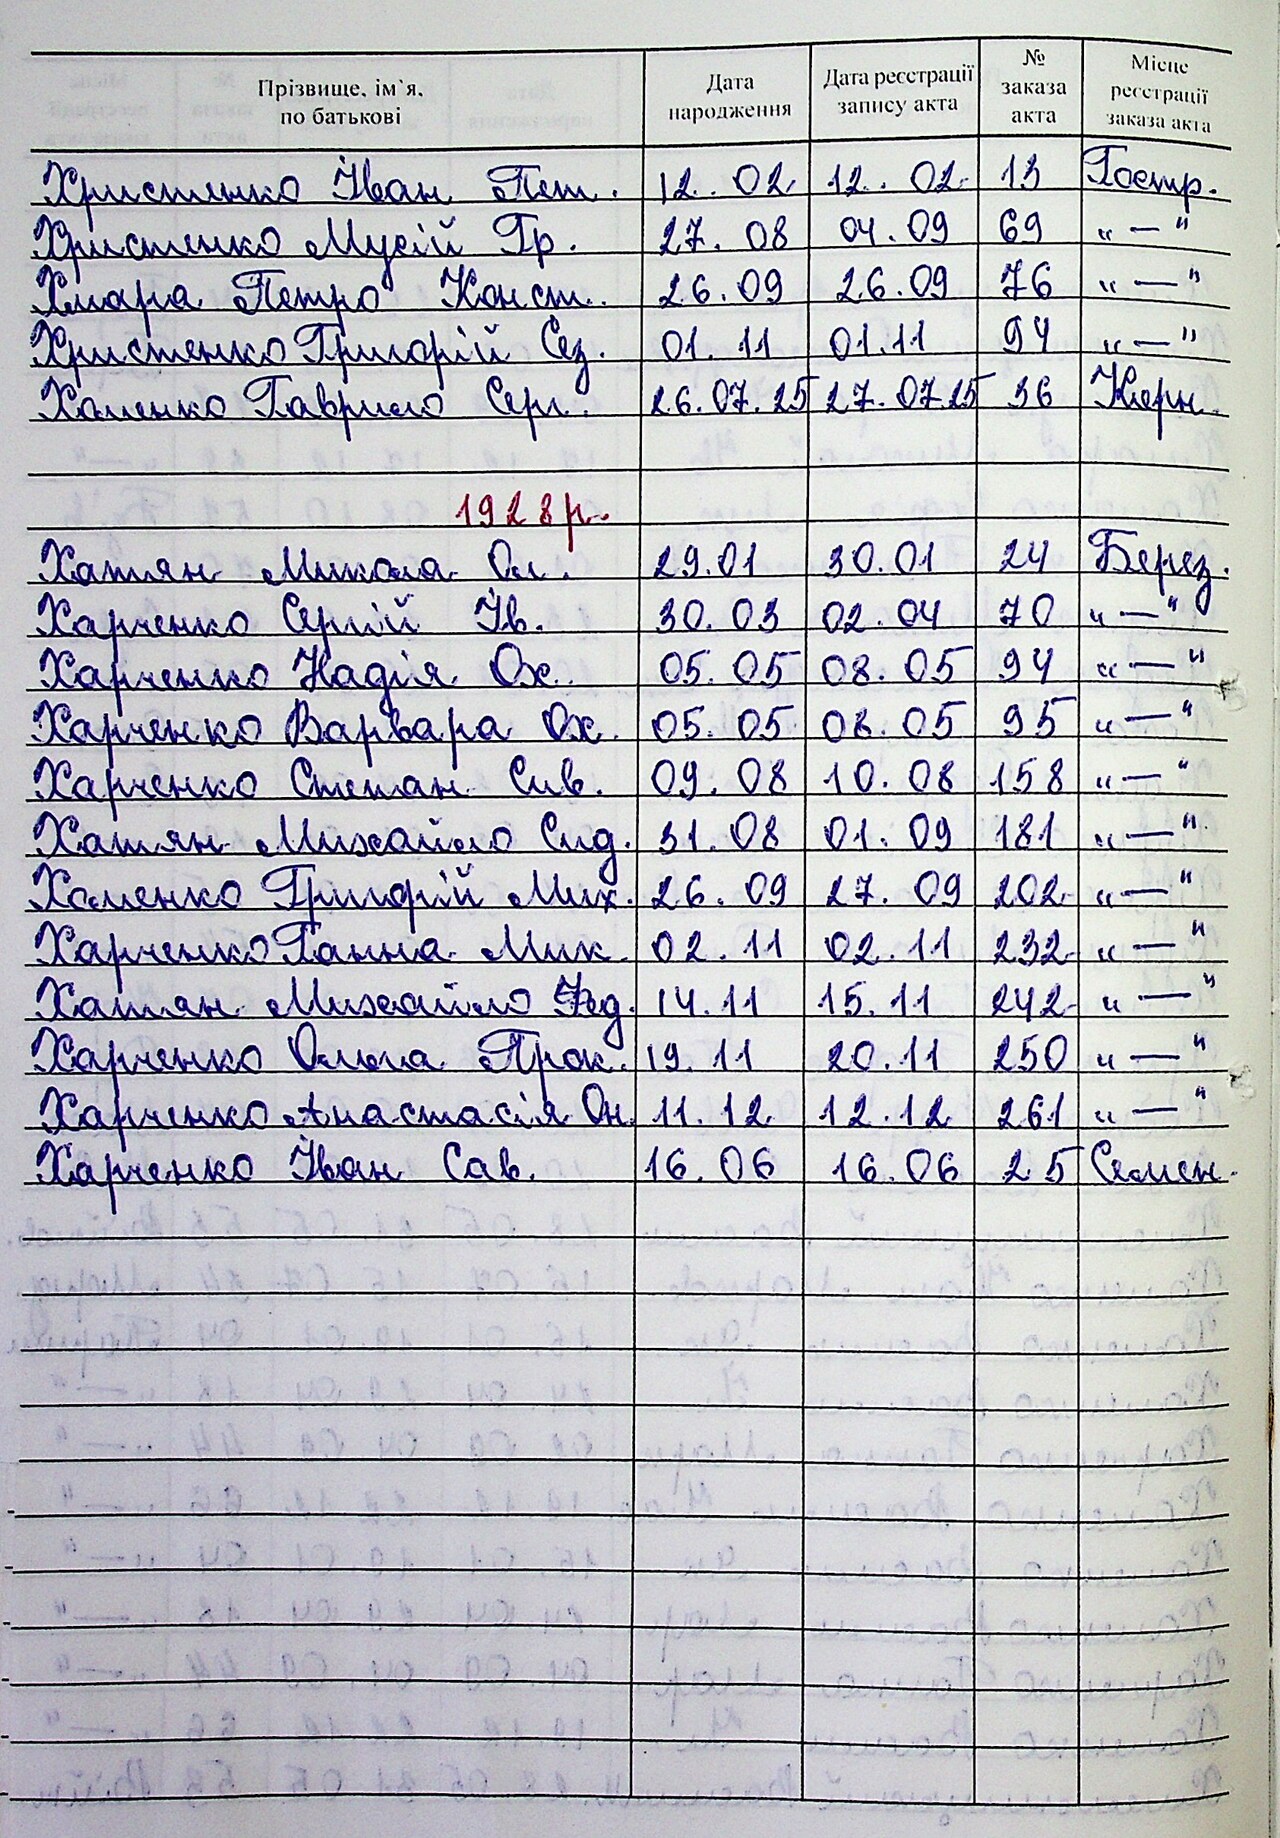 Прізвище, ім`я, по батькові Дата народження Дата реєстрації запису акта № заказа акта Місце реєстрації заказа акта
Христенко Іван Пет. 12.02. 12.02. 13 Гостр.
Христенко Мусій Гр. 27.08 04.09 69 "—"
Хмара Петро Конст. 26.09 26.09 76 "—"
Христенко Григорій Сез. 01.11 01.11 94 "—"
Хоменко Гаврило Серг. 26.07.25 27.07.25 36 Керн.
1928р.
Хатян Микола Ол. 29.01 30.01 24 Берез.
Харченко Сергій Ів. 30.03 02.04 70 "—"
Харченко Надія Ох. 05.05 08.05 94 "—"
Харченко Варвара Ох. 05.05 08.05 95 "—"
Харченко Степан Сив. 09.08 10.08 158 "—"
Хатян Михайло Сид. 31.08 01.09 181 "—"
Хоменко Григорій Мих. 26.09 27.09 202 "—"
Харченко Ганна Мик. 02.11 02.11 232 "—"
Хатян Михайло Фед. 14.11 15.11 242 "—"
Харченко Ольга Прок. 19.11 20.11 250 "—"
Харченко Анастасія Он. 11.12 12.12 261 "—"
Харченко Іван Сав. 16.06 16.06 25 Семен.